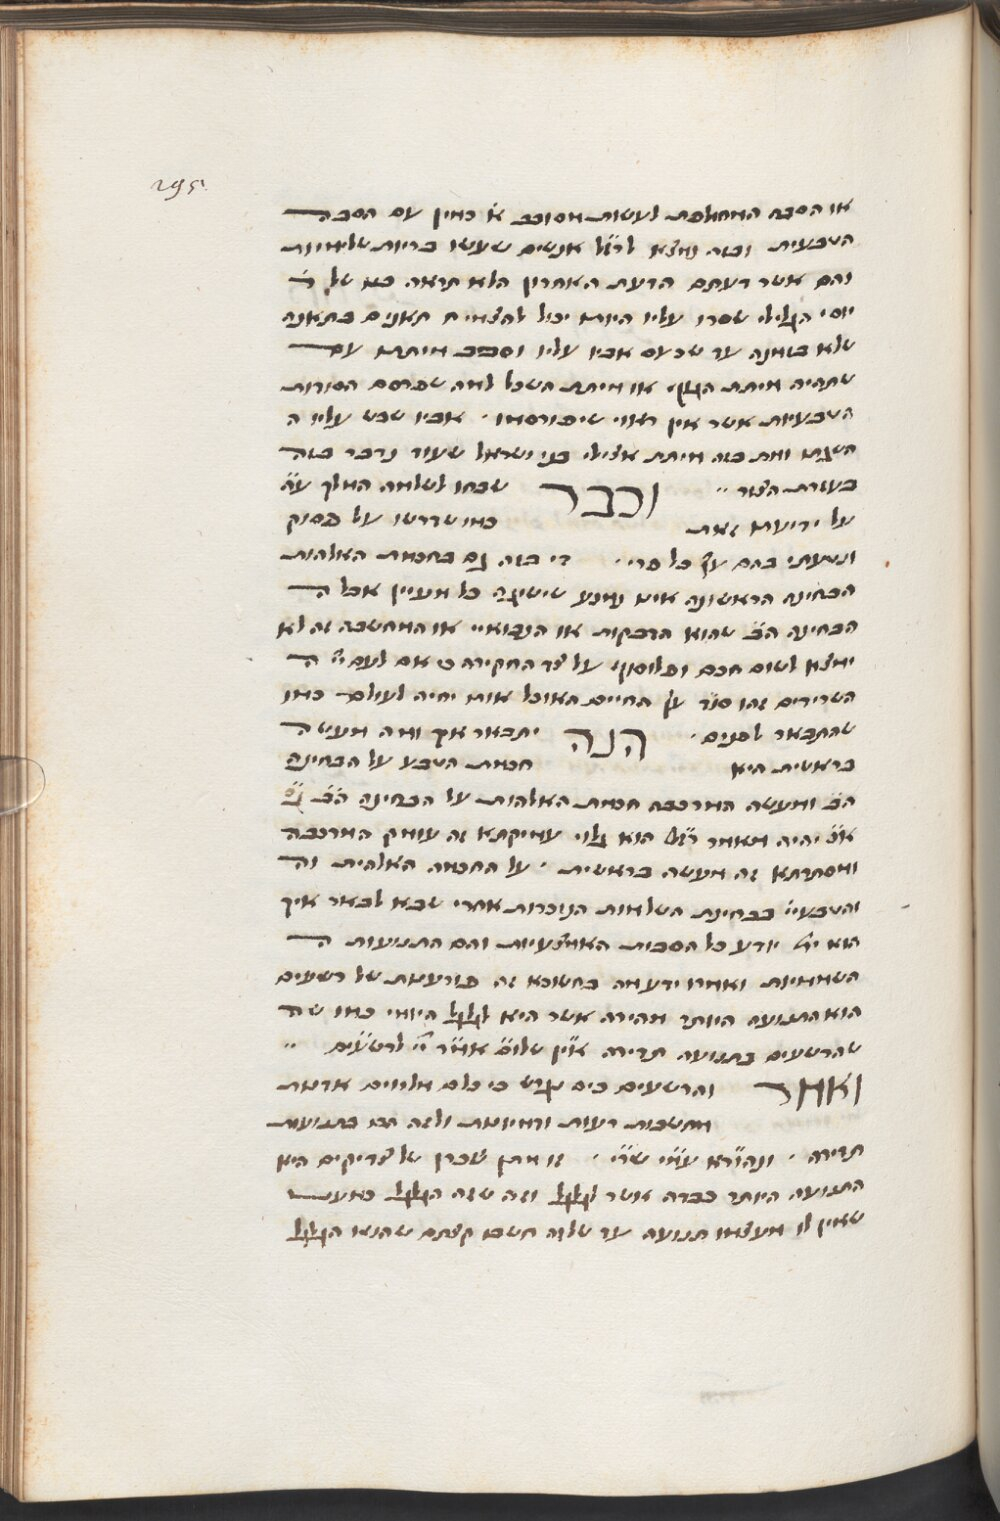 295
או הסבה המחולפת לעשות מסובב או כמין עם הסבה
הטבעית ובזה נמצא לרז״ל אנשים שעשו בריות שלימיות
והם אשר דעתם הדעת האחרון הלא תראה כמו של ר׳
יוסי הגלילי שסרו עליו היום יכול להצמיח תאנים בתאנה
שלא בזמנה עד שכעס אביו עליו וסבב מיתתו עם
שתהיה מיתת הגוף או מיתת השכל למה שפרסם הסודות
הטבעיות אשר אין ראוי שיפורסמו · אביו שכעס עליו ה
השגתו וזאת בזה מיתת אצילי בני ישראל שעוד נדבר בזה
בעזרת הצור ״ וכבר שבחו לשלמה המלך ע״ה
על ידיעת זאת כמו שדרשו על פסוק
ונטעתי בהם עץ כל פרי · די בזה גם בחכמת האלהות
הבחינה הראשונה אינו נמנע שישיגה כל מעיין אבל ה
הבחינה הב׳ שהוא הדבקות או הנבואיי או המחשבה זה לא
ימצא לשום חכם ופלוסוף על צד החקירה כי אם לעם יי׳ ה
השרידים וזהו סוד עץ החיים האוכל אותו יחיה לעולם כמו
שהתבאר לפנים · הנה יתבאר איך ומה מעשה
בראשית היא חכמת הטבע על הבחינה
הב׳ ומעשה המרכבה חכמת האלהות על הבחינה הב׳ ג״כ
א״כ יהיה מאמר רז״ל הוא גלוי עמיקתא זה עומק המרכבה
ומסתרתא זה מעשה בראשית · על החכמה האלהית וה
והטבעיי׳ בבחינת השלמות הנזכרות אחרי שבא לבאר איך
הוא ית׳ יודע כל הסבות האמצעיות והם התנועות ה
השמימיות ואמרו ידע מה בחשוכא זה פורענות של רשעים
הוא התנועה היותר מהירה אשר היא לגלגל היומי כמו שה
שהרשעים בתנועה תדירה א״ין שלו״ם אמ״ר יי׳ לרשעי״ם ״
ואמר והרשעים כים נגרש כי כלם מלויים אדמת
מחשבות רעות ודמיונות ולזה הם בתנועות
תדירה · ונהורא עמ״י שר״י · זו מתן שכרן של צדיקים היא
התנועה היותר כבדה אשר לגלגל וזה שזה הגלגל כמעט
שאין לו מעצמו תנועה עד שלזה חשבו קצתם שהוא הגלגל